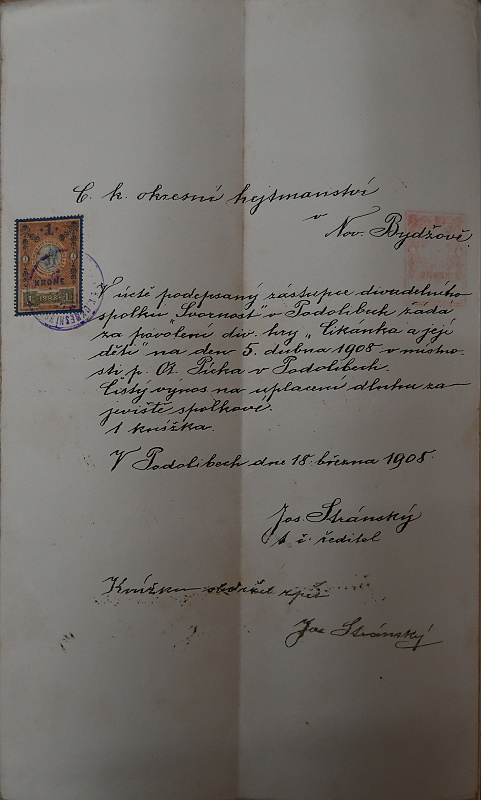 C. k. okresní hejtmanství
v
Nov. Bydžově.
1
KRONE
1 1898 1
V úctě podepsaný zástupce divadelního
spolku „Svornost" v Podolibech žádá
za povolení div. hry „Cikánka a její
děti" na den 5. dubna 1908 v místno-
sti p. Píčka v Podolibech.
Čistý výnos na uplacení dluhu za
jeviště spolkové.
1 knížka.
V Podolibech dne 18. března 1908.
Jos. Stránský
t. č. ředitel
Knížku obdržel zpět
Jos Stránský